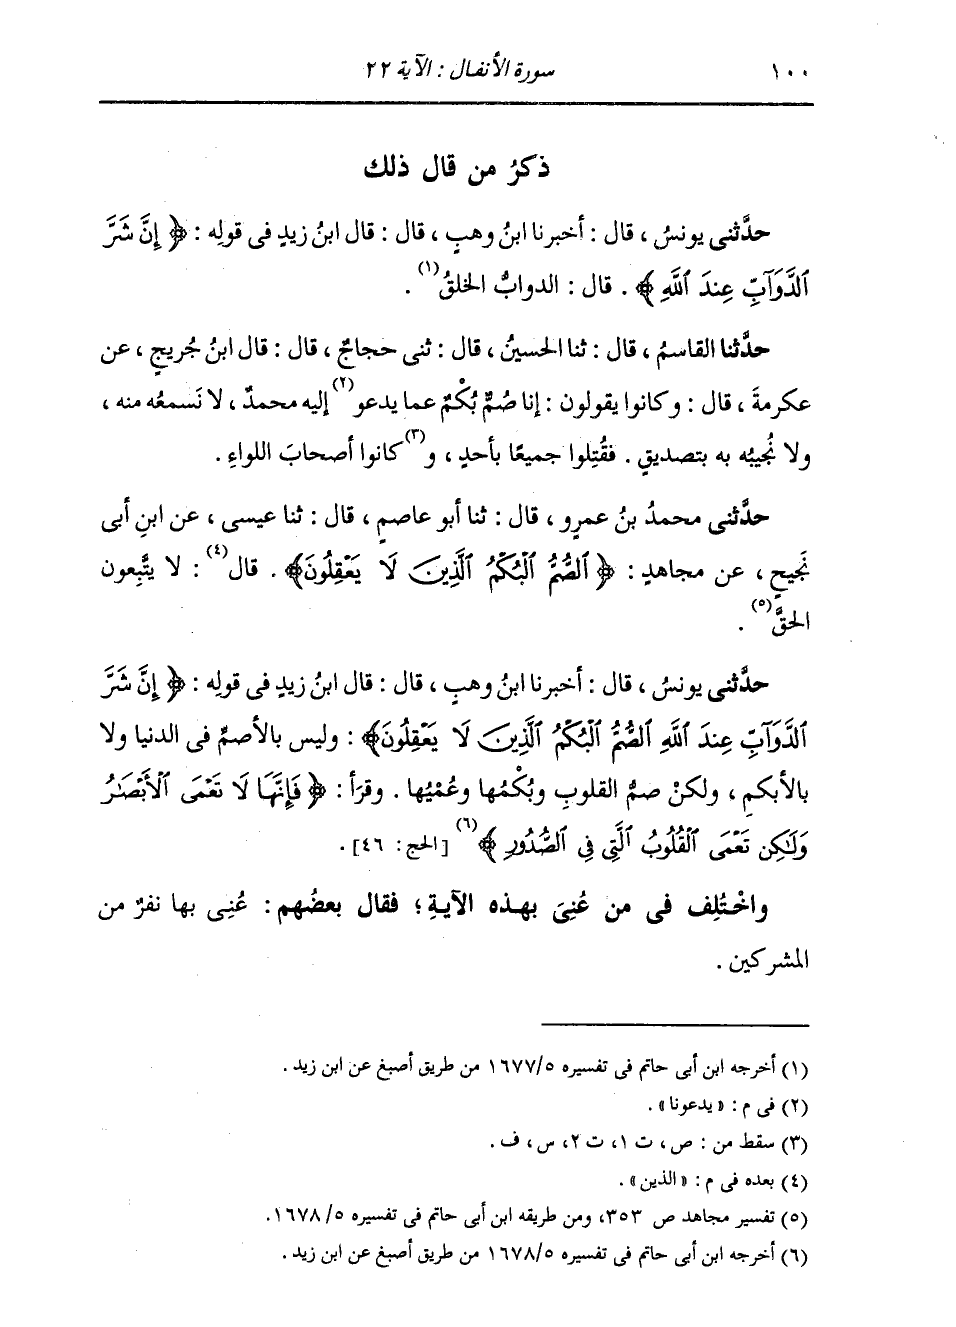 ١٠٠ سورة الأنفال : الآية ٢٢
ذكرُ من قال ذلك
حدَّثنى يونسُ ، قال : أخبرنا ابنُ وهبٍ ، قال : قال ابنُ زيدٍ فى قولِه : ﴿ إِنَّ شَرَّ
ٱلدَّوَآبِّ عِندَ ٱللَّهِ ﴾ . قال : الدوابُّ الخلقُ(١) .
حدَّثنا القاسمُ ، قال : ثنا الحسينُ ، قال : ثنى حجاجٌ ، قال : قال ابنُ جُريجٍ ، عن
عكرمةَ ، قال : وكانوا يقولون : إنا صُمٌّ بُكْمٌ عما يدعو(٢) إليه محمدٌ ، لا نَسمعُه منه ،
ولا نُجيبُه به بتصديقٍ . فقُتِلوا جميعًا بأحدٍ ، و(٣)كانوا أصحابَ اللواءِ .
حدَّثنى محمدُ بنُ عمرٍو ، قال : ثنا أبو عاصمٍ ، قال : ثنا عيسى ، عن ابنِ أبى
نَجيحٍ ، عن مجاهدٍ : ﴿ ٱلصُّمُّ ٱلْبُكْمُ ٱلَّذِينَ لَا يَعْقِلُونَ﴾ . قال(٤) : لا يتَّبِعون
الحقَّ(٥) .
حدَّثنى يونسُ ، قال : أخبرنا ابنُ وهبٍ ، قال : قال ابنُ زيدٍ فى قولِه : ﴿ إِنَّ شَرَّ
ٱلدَّوَآبِّ عِندَ ٱللَّهِ ٱلصُّمُّ ٱلْبُكْمُ ٱلَّذِينَ لَا يَعْقِلُونَ﴾ : وليس بالأصمِّ فى الدنيا ولا
بالأبكمِ ، ولكنْ صمُّ القلوبِ وبُكْمُها وعُمْيُها . وقرَأ : ﴿ فَإِنَّهَا لَا تَعْمَى ٱلْأَبْصَٰرُ
وَلَٰكِن تَعْمَى ٱلْقُلُوبُ ٱلَّتِى فِى ٱلصُّدُورِ ﴾(٦) [الحج: ٤٦] .
واخْتُلِف فى من عُنِىَ بهذه الآيةِ ؛ فقال بعضُهم : عُنِى بها نفرٌ من
المشركين .
(١) أخرجه ابن أبى حاتم فى تفسيره ١٦٧٧/٥ من طريق أصبغ عن ابن زيد .
(٢) فى م : « يدعونا » .
(٣) سقط من : ص ، ت ١، ت ٢، س ، ف .
(٤) بعده فى م : « الذين » .
(٥) تفسير مجاهد ص ٣٥٣، ومن طريقه ابن أبى حاتم فى تفسيره ١٦٧٨/٥.
(٦) أخرجه ابن أبى حاتم فى تفسيره ١٦٧٨/٥ من طريق أصبغ عن ابن زيد .